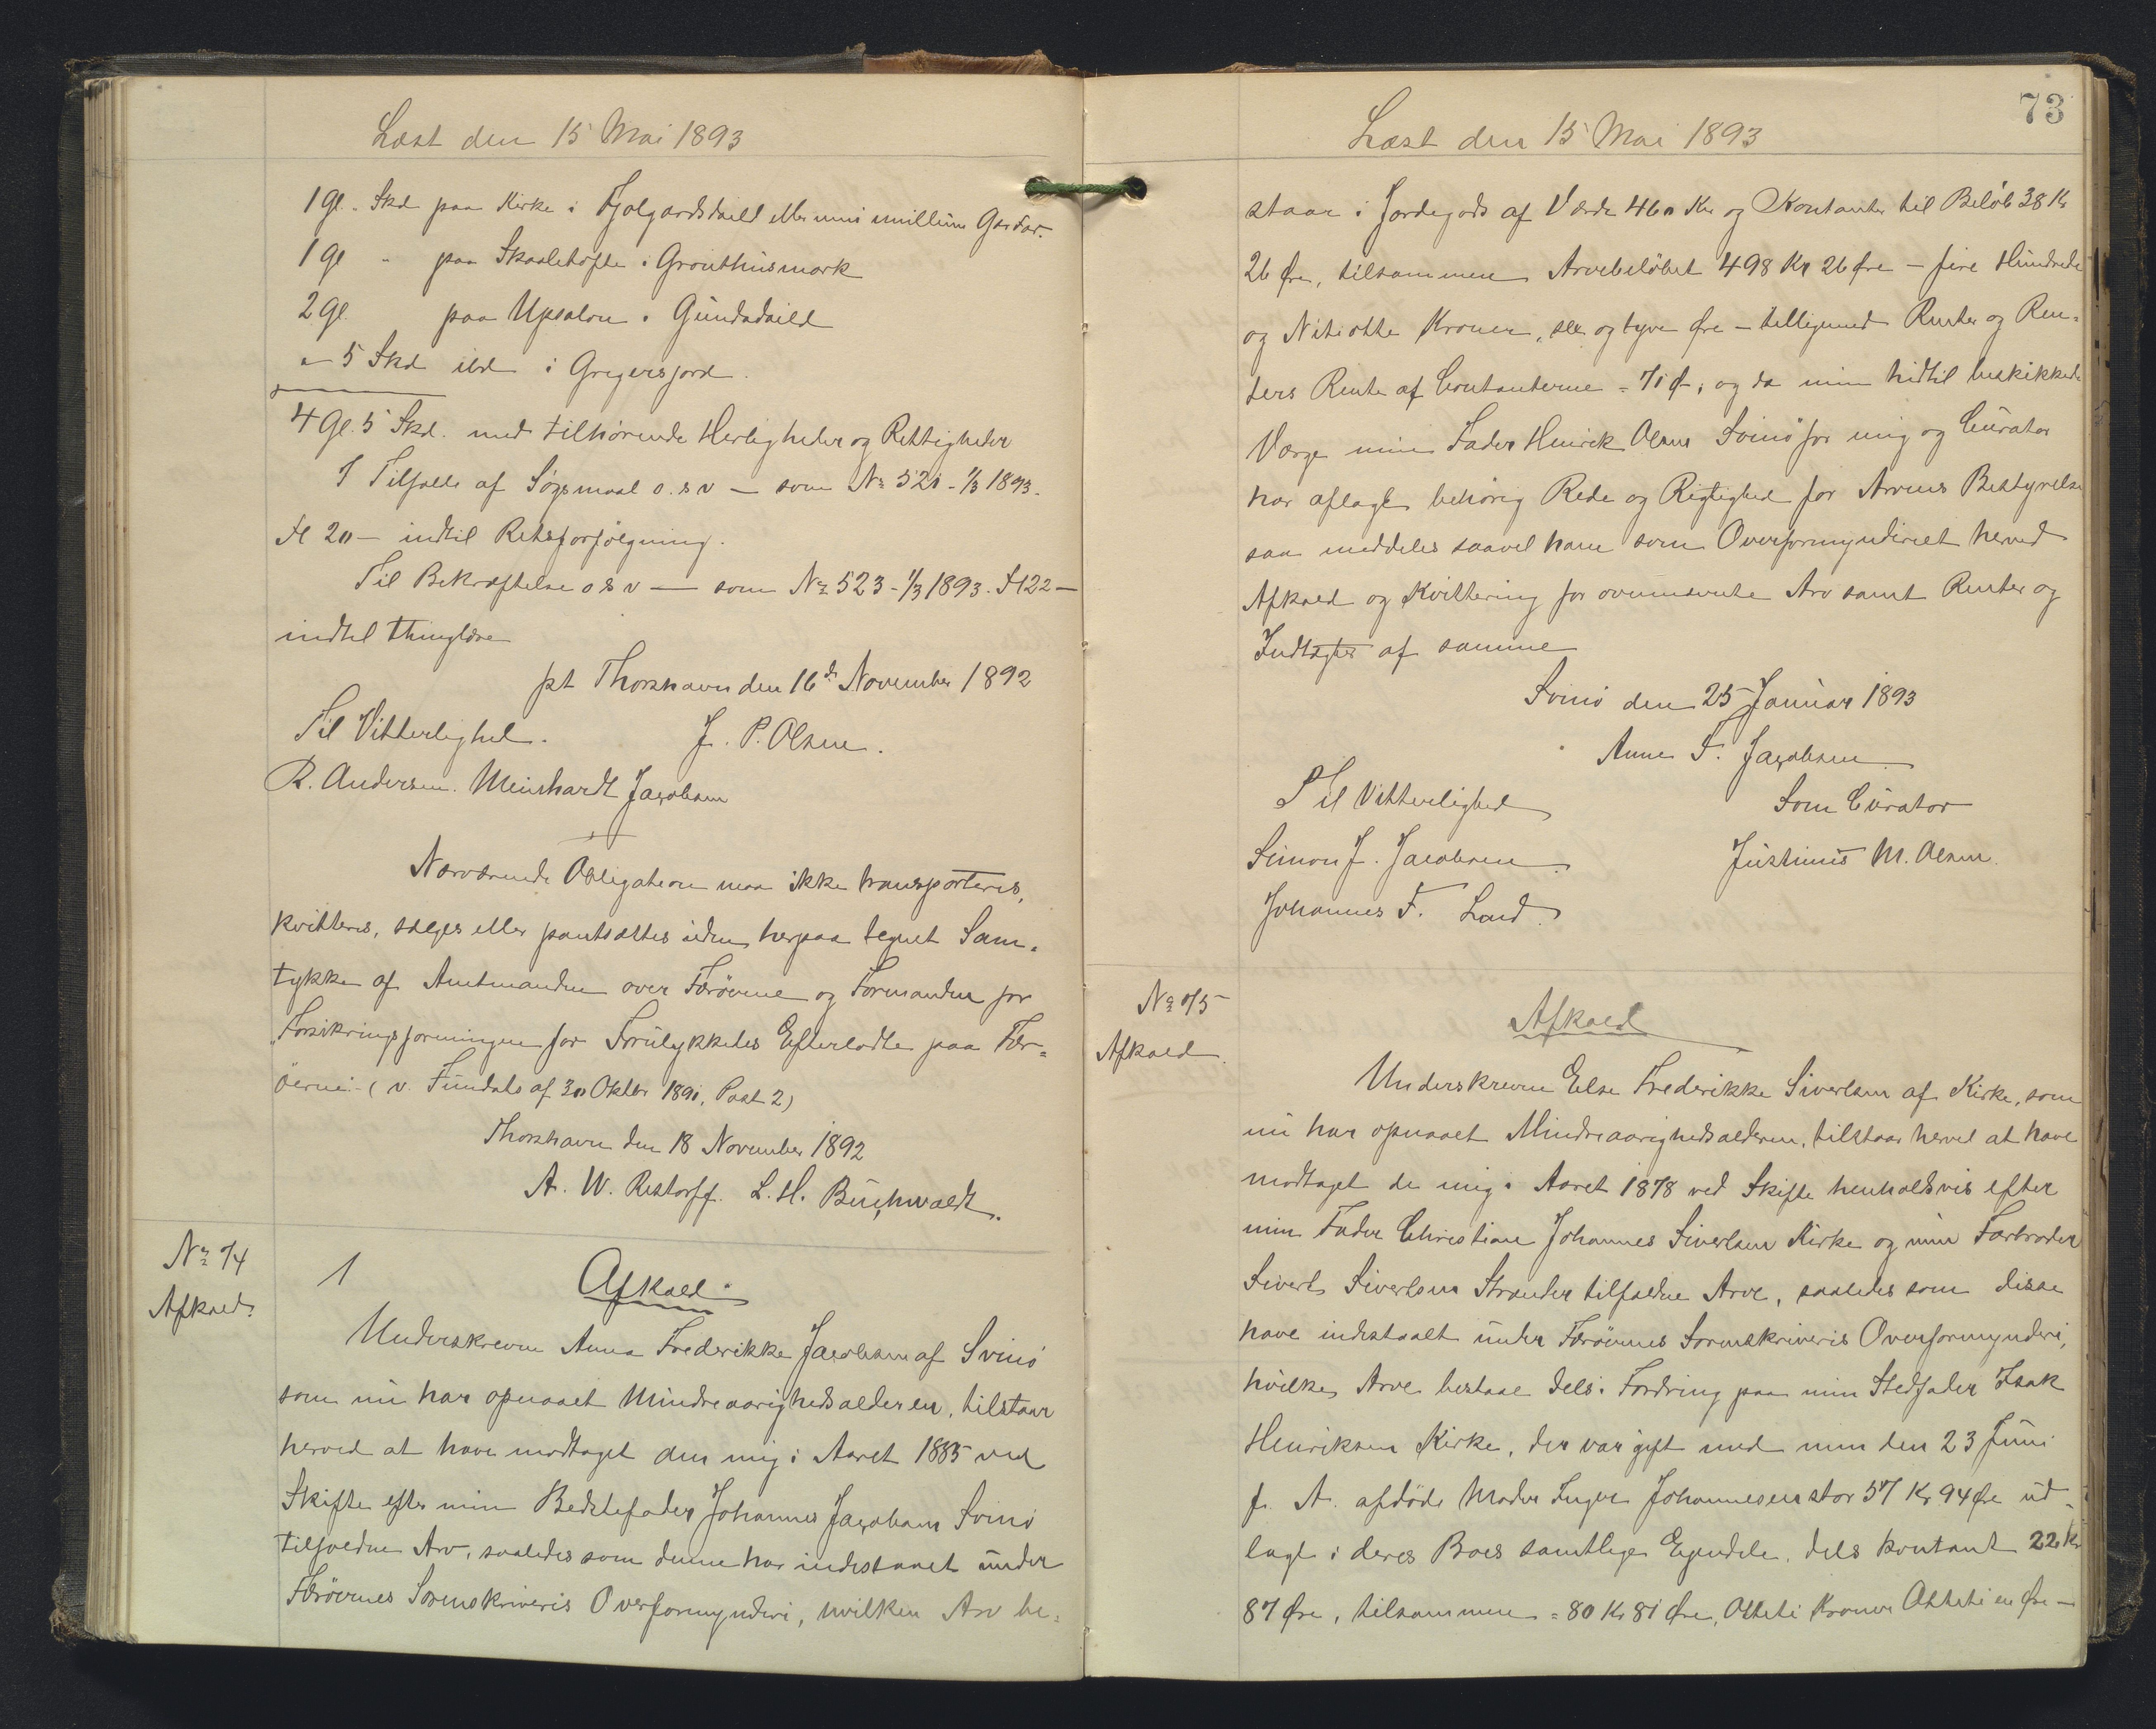 Læst den 15 Mai 1893
1 Gl. Skd paa Kirke i Fjolgardsdaild eller inni imillum Gardar.
1 Gl " paa Skaaletofte i Grouthusmark
2 Gl. paa Upsalon i Gundadaild
" - 5 Skd ibd i Gregersjord.
4 Gl. 5 Skd. med tilhørende Herligheder og Rettigheder
I Tilfælde af Søgsmaal o. s v — som No 521 - 1/3 1893.
fl 20 — indtil Retsforfølgning.
Til Bekræftelse o s v — som No 523 - 1/3 1893. f 122 —
indtil thinglæse
pt Thorshavn den 16de November 1892
Til Vitterlighed. J. P. Olsen.
R. Andersen. Meinhardt Jacobsen
Nærværende Obligation maa ikke transporteres,
kvitteres, sælges eller pantsættes uden herpaa tegnet Sam-
tykke af Amtmanden over Færøerne og Formanden for
"Forsikringsforeningen for Forulykkedes Efterladte paa Fær-
øerne" (v. Fundats af 30 Oktbr 1891, Post 2)
Thorshavn den 18 November 1892
A. W. Restorff. L. H. Buchwaldt.
No 74
Afkald.
1 Afkald.
Underskrevne Anna Frederikke Jacobsen af Svinø
som nu har opnaaet Mindreaarighedsalderen, tilstaar
herved at have modtaget den mig i Aaret 1885 ved
Skifte efter min Bedstefader Johannes Jacobsen Svinø
tilfaldne Arv, saaledes som denne har indestaaet under
Færøernes Sorenskriveris Overformynderi, hvilken Arv be-
73
Læst den 15 Mai 1893
staar i Jordegods af Værdi 460 Kr og Kontanter til Beløb 38 Kr
26 Øre, tilsammen Arvebeløbet 498 Kr 26 Øre — fire Hundrede
og Nitiotte Kroner, sex og tyve Øre — tilligemed Renter og Ren-
ters Rente af Contanterne = 71 Ø., og da min hidtil beskikkede
Værge min Fader Henrik Olsen Svinø for mig og Curator
har aflagt behørig Rede og Rigtighed for Arvens Bestyrelse
saa meddeles saavel ham som Overformynderiet herved
Afkald og Kvittering for ovennævnte Arv samt Renter og
Indtægter af samme
Svinø den 25 Januar 1893
Anna F. Jacobsen
Til Vitterlighed Som Curator
Simon J. Jacobsen Justinus M. Olsen.
Johannes F. Lond.
No 75
Afkald.
Afkald
Underskrevne Else Frederikke Sivertsen af Kirke, som
nu har opnaaet Mindreaarighedsalderen, tilstaar hervel at have
modtaget de mig i Aaret 1878 ved Skifte henholdsvis efter
min Fader Christian Johannes Sivertsen Kirke og min Farbroder
Sivert Sivertsen Strender tilfaldne Arve, saaledes som disse
have indestaalt under Færøernes Sorenskriveris Overformynderi,
hvilke Arve bestaae dels i Fordring paa min Stedfader Isak
Henriksen Kirke, der var gift med min den 23 Juni
f. A. afdøde Moder Inger Johannesen stor 57 Kr 94 Øre ud-
lagt i deres Boes samtlige Ejendele, dels kontant 22 Kr
87 Øre, tilsammen = 80 Kr 81 Øre, Otteti Kroner Otteti en Øre —